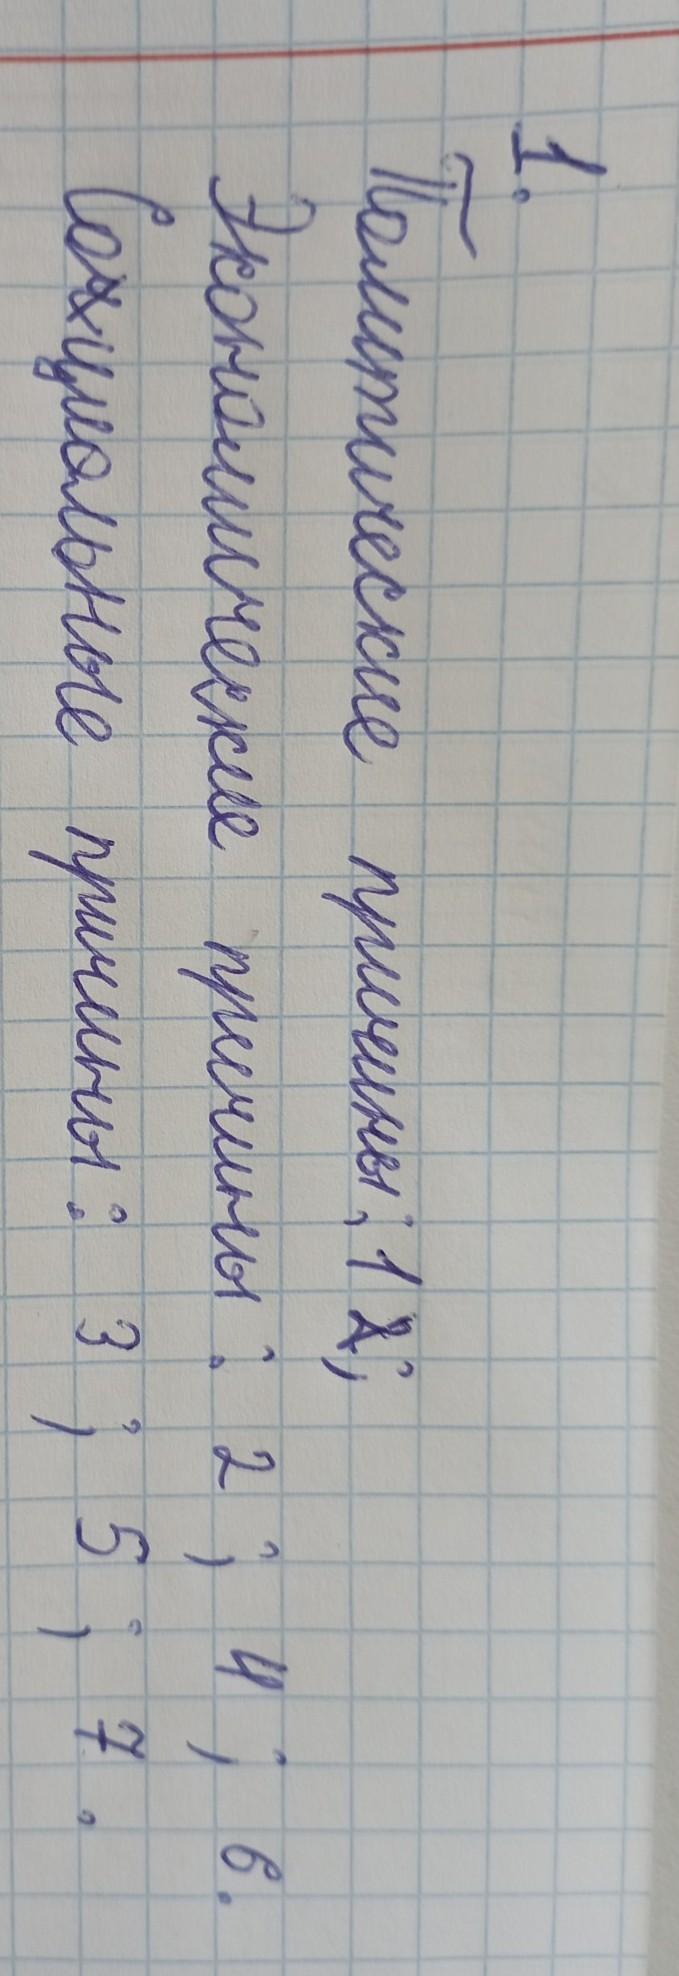 1.
Политические причины: 1;
Экономические причины: 2; 4; 6.
Социальные причины: 3; 5; 7.